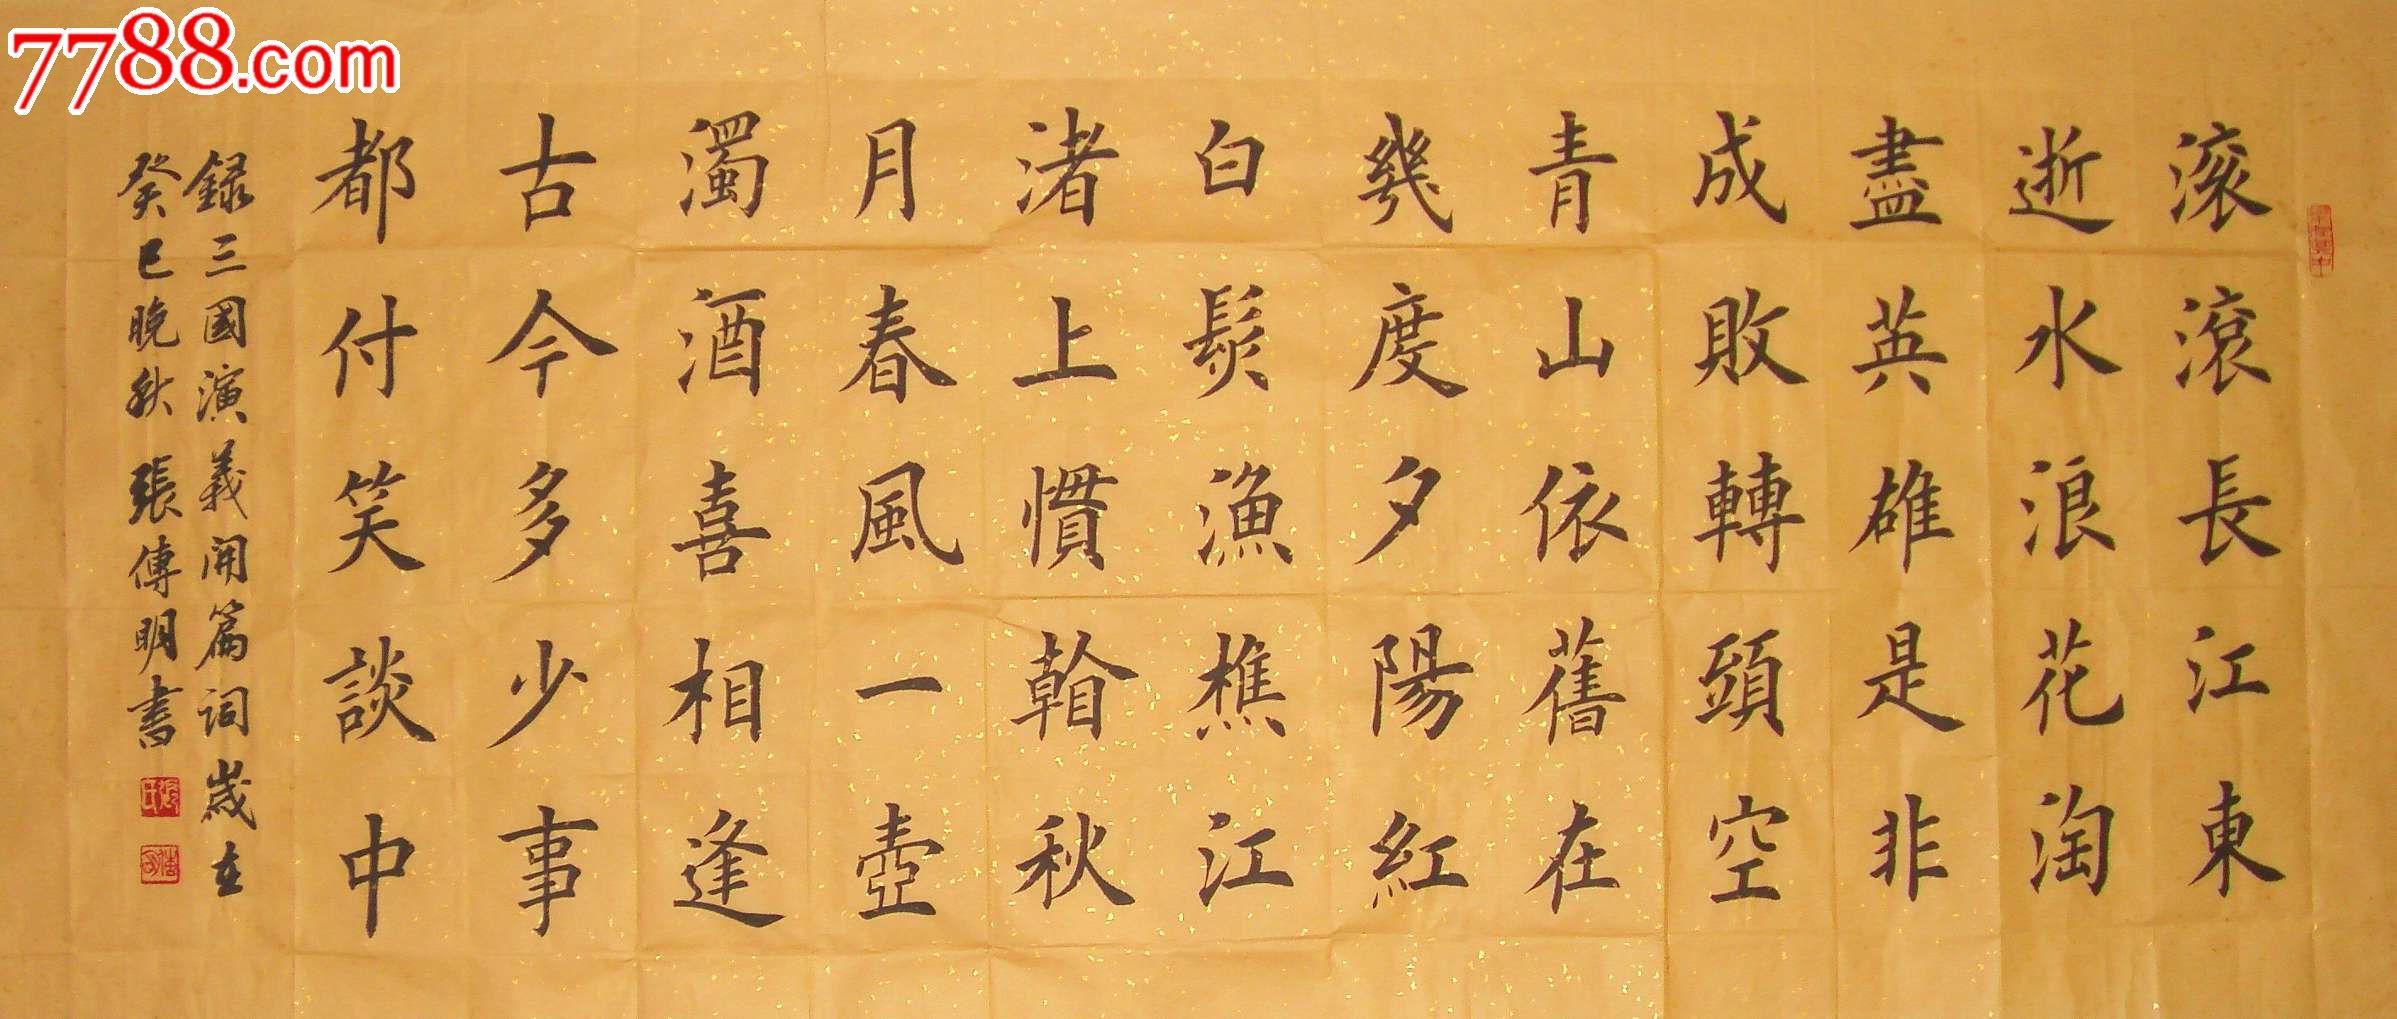 7788.com
滚滾長江東
逝水浪花淘
盡英雄是非
成敗轉頭空
青山依舊在
幾度夕陽紅
白髮漁樵江
渚上慣翰秋
月春風一壺
濁酒喜相逢
古今多少事
都付笑談中
録三國演義開篇詞歲在
癸巳晚秋張傳明書